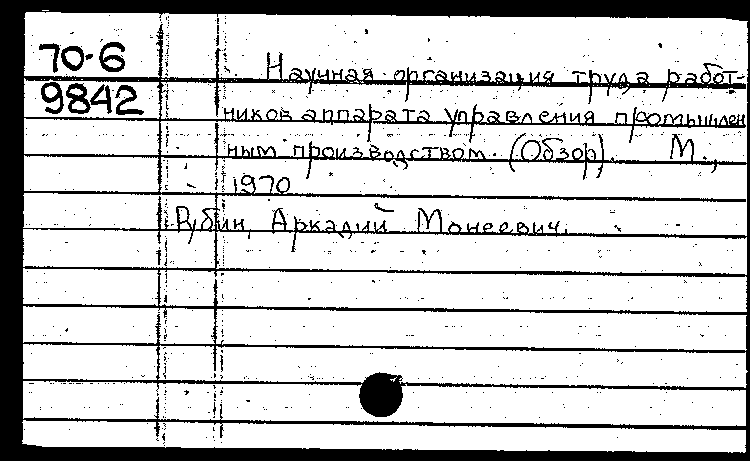 70-6
9842
Научная организация труда работ-
ников аппарата управления промышлен
ным производством. (Обзор). М.,
1970
Рубин, Аркадий Монеевич.